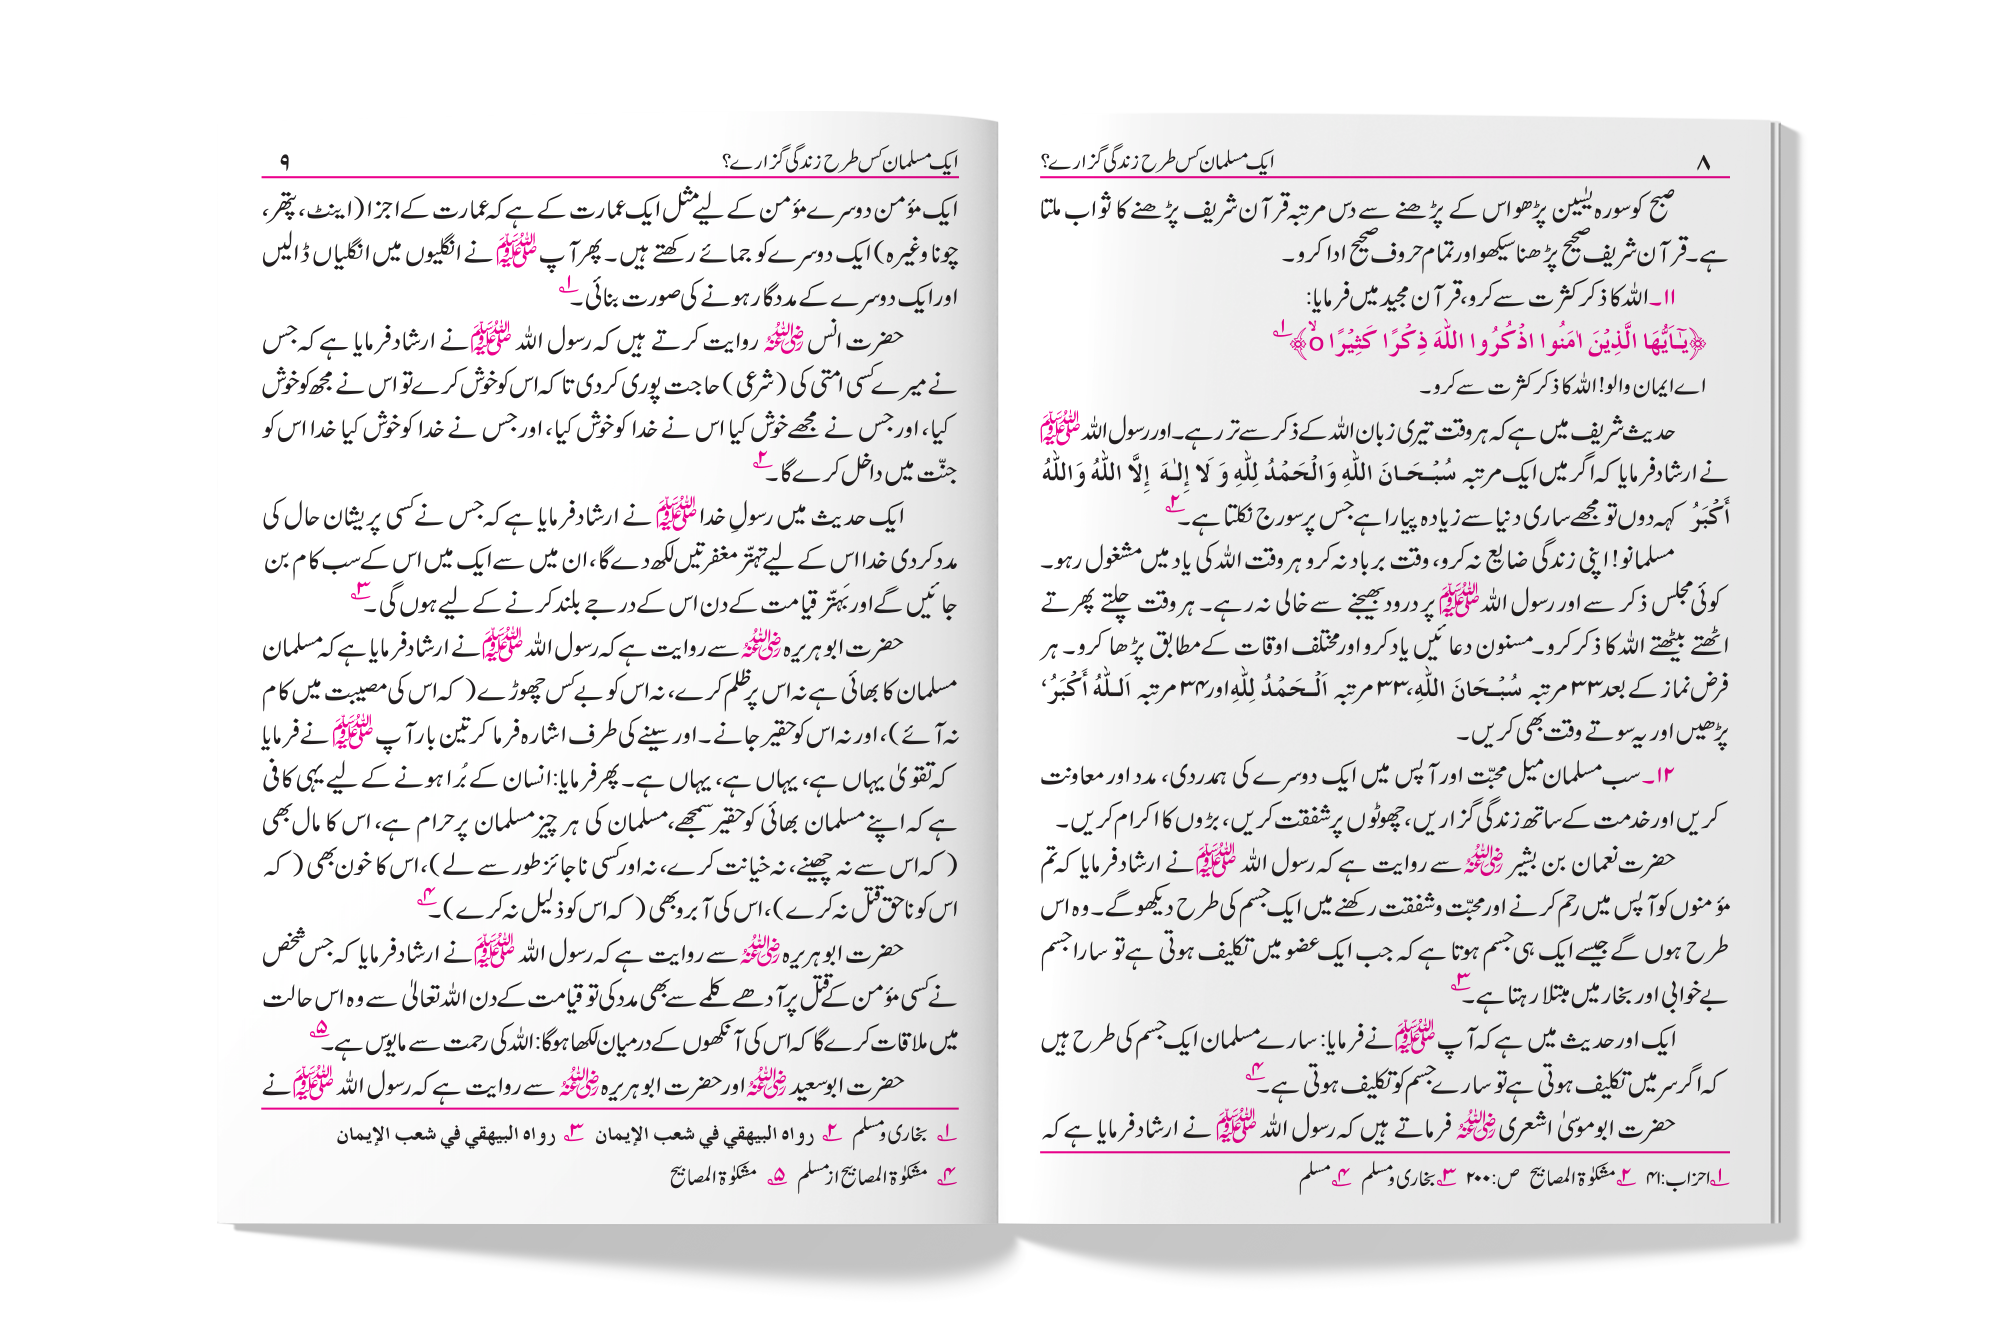 ۸ ایک مسلمان کس طرح زندگی گزارے؟
صبح کو سورہ یٰسین پڑھو اس کے پڑھنے سے دس مرتبہ قرآن شریف پڑھنے کا ثواب ملتا
ہے۔ قرآن شریف صحیح پڑھنا سیکھو اور تمام حروف صحیح ادا کرو۔
۱۱۔ اللہ کا ذکر کثرت سے کرو، قرآن مجید میں فرمایا:
﴿یٰٓاَیُّھَا الَّذِیْنَ اٰمَنُوا اذْکُرُوا اللّٰہَ ذِکْرًا کَثِیْرًا ۝ۙ﴾ ۱؎
اے ایمان والو! اللہ کا ذکر کثرت سے کرو۔
حدیث شریف میں ہے کہ ہر وقت تیری زبان اللہ کے ذکر سے تر رہے۔ اور رسول اللہ ﷺ
نے ارشاد فرمایا کہ اگر میں ایک مرتبہ سُبْحَانَ اللّٰهِ وَالْحَمْدُ لِلّٰهِ وَ لَا إِلٰهَ إِلَّا اللّٰهُ وَاللّٰهُ
أَكْبَرُ کہہ دوں تو مجھے ساری دنیا سے زیادہ پیارا ہے جس پر سورج نکلتا ہے۔ ۲؎
مسلمانو! اپنی زندگی ضایع نہ کرو، وقت برباد نہ کرو ہر وقت اللہ کی یاد میں مشغول رہو۔
کوئی مجلس ذکر سے اور رسول اللہ ﷺ پر درود بھیجنے سے خالی نہ رہے۔ ہر وقت چلتے پھرتے
اٹھتے بیٹھتے اللہ کا ذکر کرو۔ مسنون دعائیں یاد کرو اور مختلف اوقات کے مطابق پڑھا کرو۔ ہر
فرض نماز کے بعد ۳۳ مرتبہ سُبْحَانَ اللّٰهِ، ۳۳ مرتبہ اَلْحَمْدُ لِلّٰهِ اور ۳۴ مرتبہ اَللّٰهُ أَكْبَرُ،
پڑھیں اور یہ سوتے وقت بھی کریں۔
۱۲۔ سب مسلمان میل محبّت اور آپس میں ایک دوسرے کی ہمدردی، مدد اور معاونت
کریں اور خدمت کے ساتھ زندگی گزاریں، چھوٹوں پر شفقت کریں، بڑوں کا اکرام کریں۔
حضرت نعمان بن بشیر رضی اللہ عنہ سے روایت ہے کہ رسول اللہ ﷺ نے ارشاد فرمایا کہ تم
مؤمنوں کو آپس میں رحم کرنے اور محبّت و شفقت رکھنے میں ایک جسم کی طرح دیکھو گے۔ وہ اس
طرح ہوں گے جیسے ایک ہی جسم ہوتا ہے کہ جب ایک عضو میں تکلیف ہوتی ہے تو سارا جسم
بے خوابی اور بخار میں مبتلا رہتا ہے۔ ۳؎
ایک اور حدیث میں ہے کہ آپ ﷺ نے فرمایا: سارے مسلمان ایک جسم کی طرح ہیں
کہ اگر سر میں تکلیف ہوتی ہے تو سارے جسم کو تکلیف ہوتی ہے۔ ۴؎
حضرت ابو موسیٰ اشعری رضی اللہ عنہ فرماتے ہیں کہ رسول اللہ ﷺ نے ارشاد فرمایا ہے کہ
۱؎ احزاب: ۴۱ ۲؎ مشکوٰۃ المصابیح ص: ۲۰۰ ۳؎ بخاری و مسلم ۴؎ مسلم
ایک مسلمان کس طرح زندگی گزارے؟ ۹
ایک مؤمن دوسرے مؤمن کے لیے مثل ایک عمارت کے ہے کہ عمارت کے اجزا (اینٹ، پتھر،
چونا وغیرہ) ایک دوسرے کو جمائے رکھتے ہیں۔ پھر آپ ﷺ نے انگلیوں میں انگلیاں ڈالیں
اور ایک دوسرے کے مددگار ہونے کی صورت بنائی۔ ۱؎
حضرت انس رضی اللہ عنہ روایت کرتے ہیں کہ رسول اللہ ﷺ نے ارشاد فرمایا ہے کہ جس
نے میرے کسی امتی کی (شرعی) حاجت پوری کردی تاکہ اس کو خوش کرے تو اس نے مجھ کو خوش
کیا، اور جس نے مجھے خوش کیا اس نے خدا کو خوش کیا، اور جس نے خدا کو خوش کیا خدا اس کو
جنّت میں داخل کرے گا۔ ۲؎
ایک حدیث میں رسولِ خدا ﷺ نے ارشاد فرمایا ہے کہ جس نے کسی پریشان حال کی
مدد کردی خدا اس کے لیے تہتّر مغفرتیں لکھ دے گا، ان میں سے ایک میں اس کے سب کام بن
جائیں گے اور بَہتّر قیامت کے دن اس کے درجے بلند کرنے کے لیے ہوں گی۔ ۳؎
حضرت ابو ہریرہ رضی اللہ عنہ سے روایت ہے کہ رسول اللہ ﷺ نے ارشاد فرمایا ہے کہ مسلمان
مسلمان کا بھائی ہے نہ اس پر ظلم کرے، نہ اس کو بے کس چھوڑے (کہ اس کی مصیبت میں کام
نہ آئے)، اور نہ اس کو حقیر جانے۔ اور سینے کی طرف اشارہ فرما کر تین بار آپ ﷺ نے فرمایا
کہ تقویٰ یہاں ہے، یہاں ہے، یہاں ہے۔ پھر فرمایا: انسان کے بُرا ہونے کے لیے یہی کافی
ہے کہ اپنے مسلمان بھائی کو حقیر سمجھے، مسلمان کی ہر چیز مسلمان پر حرام ہے، اس کا مال بھی
(کہ اس سے نہ چھینے، نہ خیانت کرے، نہ اور کسی ناجائز طور سے لے)، اس کا خون بھی (کہ
اس کو ناحق قتل نہ کرے)، اس کی آبرو بھی (کہ اس کو ذلیل نہ کرے)۔ ۴؎
حضرت ابو ہریرہ رضی اللہ عنہ سے روایت ہے کہ رسول اللہ ﷺ نے ارشاد فرمایا کہ جس شخص
نے کسی مؤمن کے قتل پر آدھے کلمے سے بھی مدد کی تو قیامت کے دن اللہ تعالیٰ سے وہ اس حالت
میں ملاقات کرے گا کہ اس کی آنکھوں کے درمیان لکھا ہوگا: اللہ کی رحمت سے مایوس ہے۔ ۵؎
حضرت ابو سعید رضی اللہ عنہ اور حضرت ابو ہریرہ رضی اللہ عنہ سے روایت ہے کہ رسول اللہ ﷺ نے
۱؎ بخاری و مسلم ۲؎ رواه البيهقي في شعب الإيمان ۳؎ رواه البيهقي في شعب الإيمان
۴؎ مشکوٰۃ المصابیح از مسلم ۵؎ مشکوٰۃ المصابیح